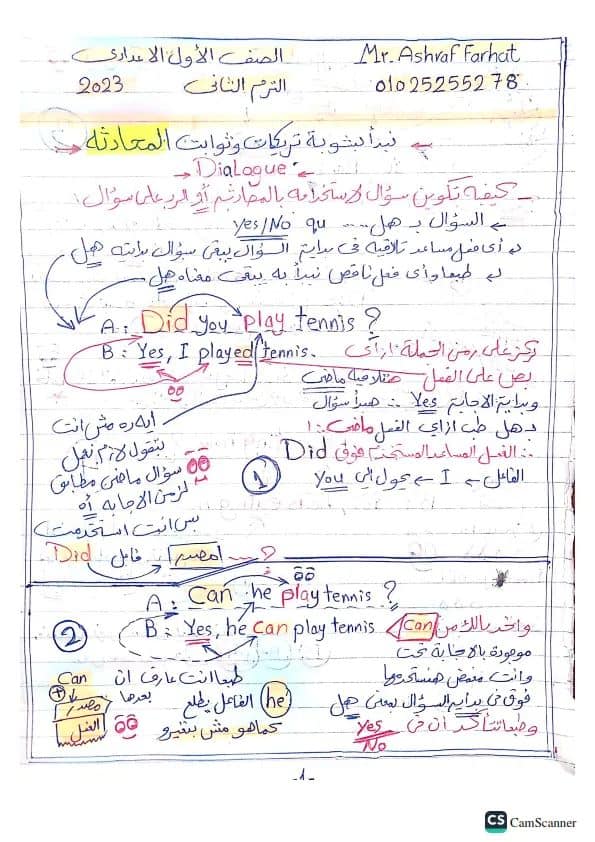 الصف الأول الاعدادى Mr. Ashraf Farhat
2023 الترم الثانى 01025255278
نبدأ بشوية تريكات وثوابت المحادثه
Dialogue
- كيفية تكوين سؤال لاستخدامه بالمحادثه أو الرد على سؤال:
السؤال بـ هل .... Yes/No qu
أى فعل مساعد تلاقيه فى بداية السؤال يبقى سؤال بدايته هل
طبعا وأى فعل ناقص نبدأ به يبقى معناه هل
A: Did you play tennis?
B: Yes, I played tennis.
ركز على زمن الجملة ازاى
بص على الفعل هتلاقيه ماضى
وبداية الاجابة Yes ∴ هبدأ سؤال
بـ هل طب ازاى الفعل ماضى ..!
∴ الفعل المساعد المستخدم فوق Did
الفاعل ← I ← يحول الى You
1
ايه ده مش انت
بتقول لازم نعمل
سؤال ماضى مطابق
لزمن الاجابه أه
بس انت استخدمت
Did فاعل مصدر ....?
A: Can he play tennis?
2
B: Yes, he can play tennis
واخد بالك من Can
موجودة بالاجابة تحت
وانت مغمض هتستخدمها
فوق فى بداية السؤال بمعنى هل
وطبعا تتأكد أن فى Yes
No
طبعا انت عارف ان Can
الفاعل يطلع he بعدها
كما هو مش بتغيرو
+
مصدر
الفعل
-1-
CS CamScanner